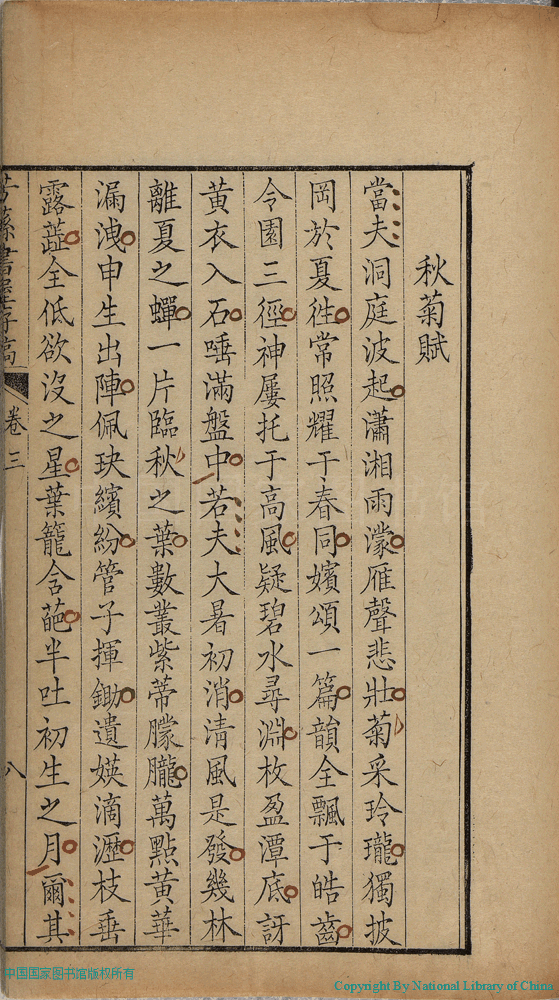 秋菊賦
當夫洞庭波起瀟湘雨濛雁聲悲壯菊采玲瓏獨披
岡於夏徃常照耀于春同嬪頌一篇韻全飄于皓齒
令園三徑神屢托于高風疑碧水尋淵枚盈潭底訝
黄衣入石唾滿盤中若夫大暑初消清風是發幾林
離夏之蟬一片臨秋之葉數叢紫蒂朦朧萬點黄華
漏洩申生出陣佩玦繽紛管子揮鋤遺媖滴瀝枝垂
露蕋全低欲沒之星葉籠含葩半吐初生之月爾其
書屋存稿
卷三
八
中国国家图书馆版权所有
Copyright By National Library of China